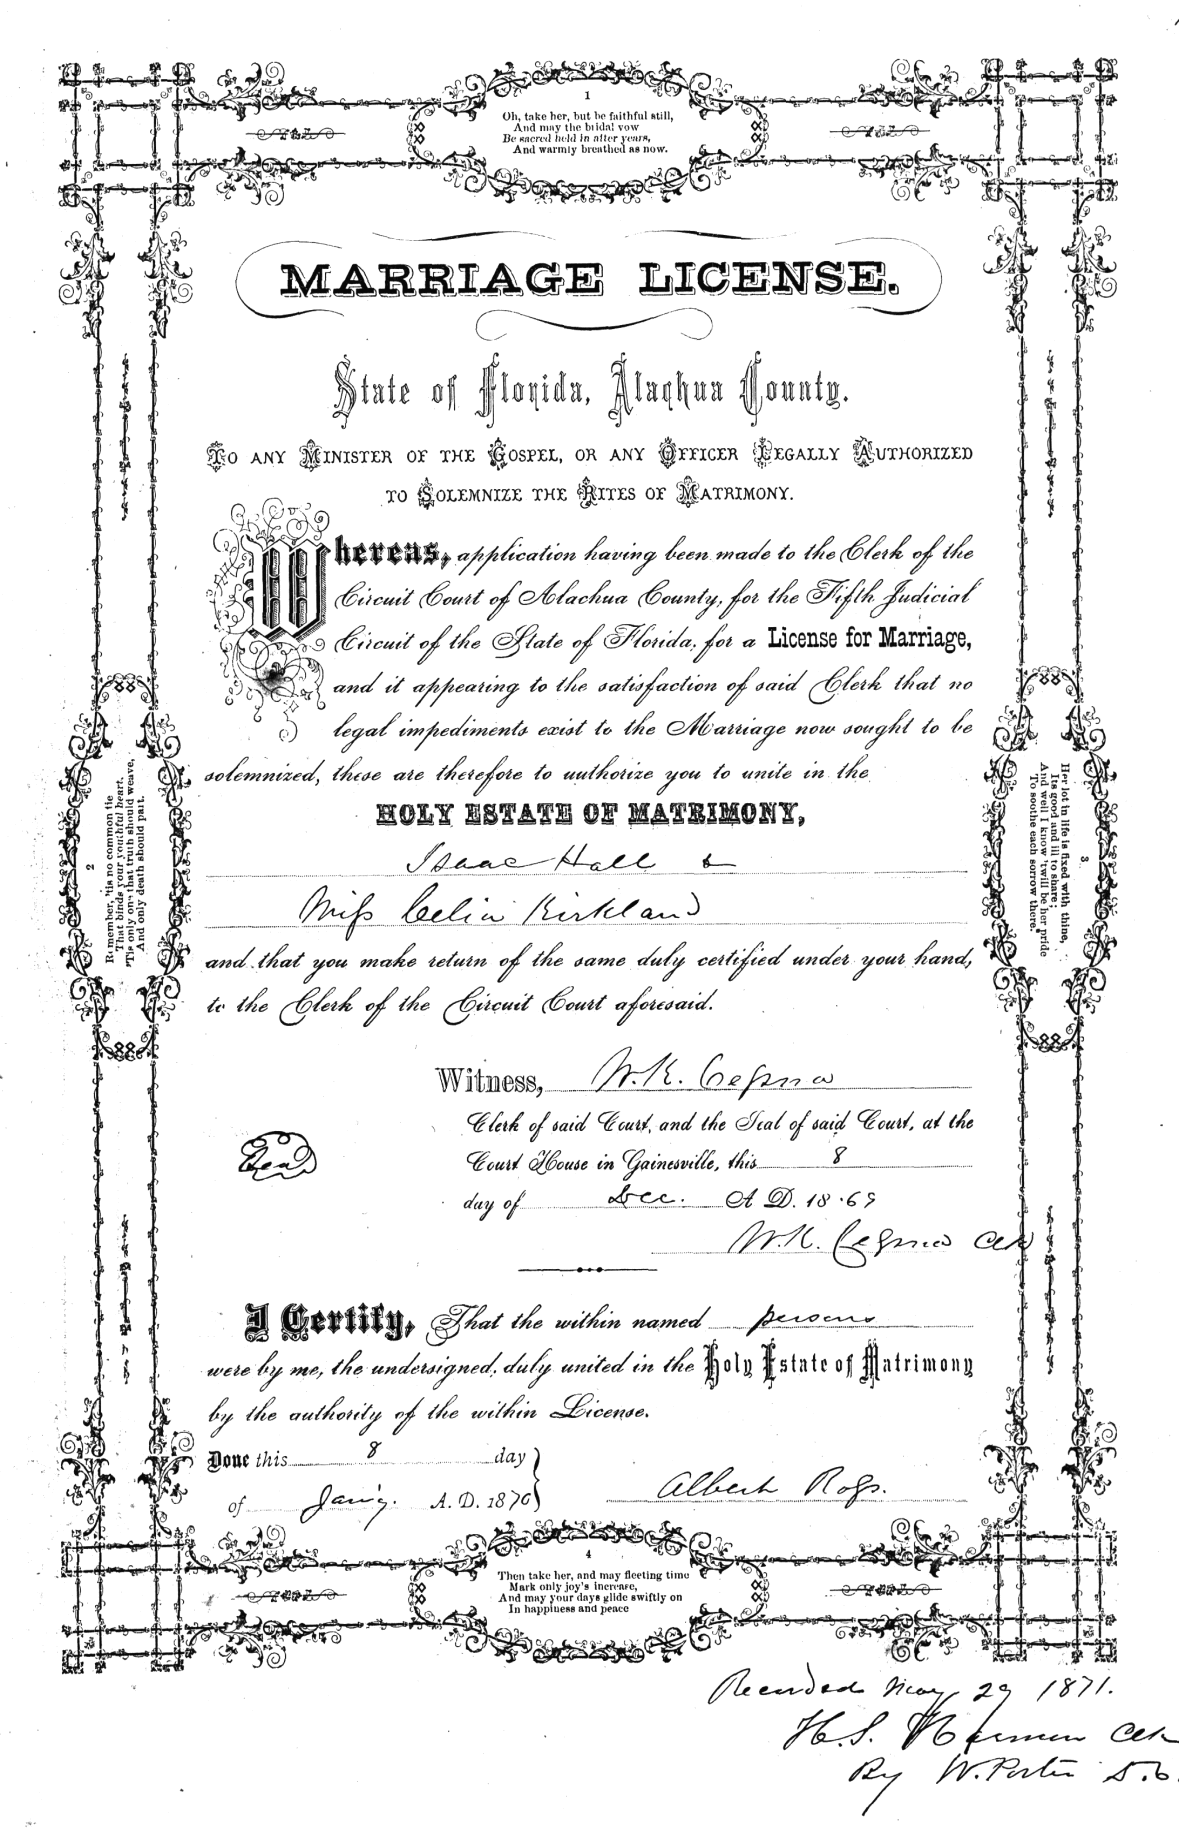 1
Oh, take her, but be faithful still,
And may the bridal vow
Be sacred held in after years,
And warmly breathed as now.
MARRIAGE LICENSE.
State of Florida, Alachua County.
TO ANY MINISTER OF THE GOSPEL, OR ANY OFFICER LEGALLY AUTHORIZED
TO SOLEMNIZE THE RITES OF MATRIMONY.
Whereas, application having been made to the Clerk of the
Circuit Court of Alachua County, for the Fifth Judicial
Circuit of the State of Florida, for a License for Marriage,
and it appearing to the satisfaction of said Clerk that no
legal impediments exist to the Marriage now sought to be
solemnized, these are therefore to authorize you to unite in the
HOLY ESTATE OF MATRIMONY,
Isaac Hall &
Miss Celia Kirkland
and that you make return of the same duly certified under your hand,
to the Clerk of the Circuit Court aforesaid.
2
Remember, 'tis no common tie
That binds your youthful heart,
'Tis only one that truth should weave,
And only death should part.
3
Her lot in life is fixed with thine,
Its good and ill to share;
And well I know 'twill be her pride
To soothe each sorrow there.
Witness, W. K. Cessna
Clerk of said Court, and the Seal of said Court, at the
Court House in Gainesville, this 8
day of Dec. A D. 18 69
Seal
W. K. Cessna Clk
I Certify, That the within named persons
were by me, the undersigned, duly united in the Holy Estate of Matrimony
by the authority of the within License.
Done this 8 day
of Jan'y. A. D. 1870
Albert Ross.
4
Then take her, and may fleeting time
Mark only joy's increase,
And may your days glide swiftly on
In happiness and peace
Recorded May 29 1871.
H. S. Harmon Clk
By W. Porter D. C.